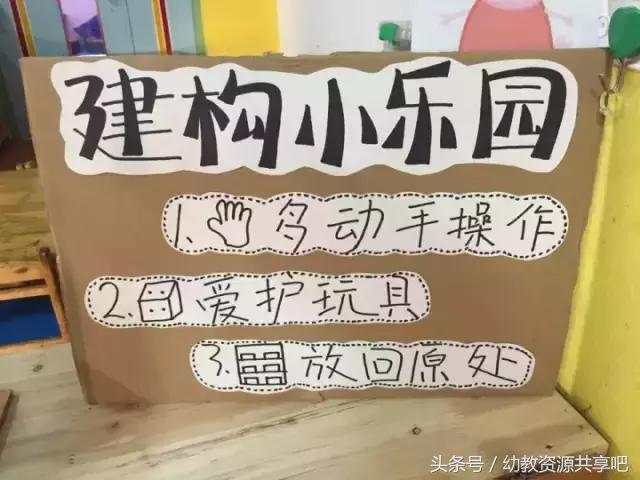 建构小乐园
1.多动手操作
2.爱护玩具
3.放回原处
头条号/幼教资源共享吧